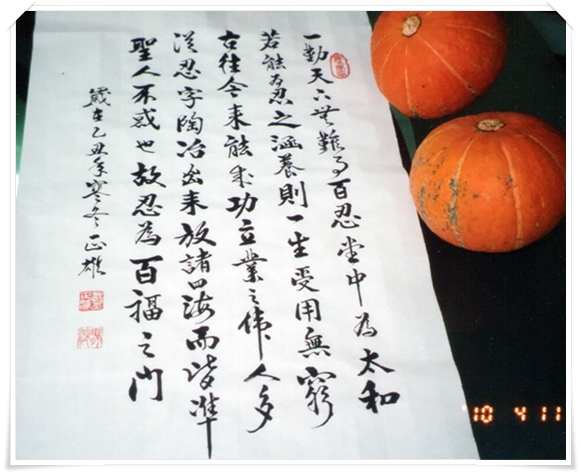 一勤天下無難事百忍堂中為太和
若能為忍之涵養則一生受用無窮
古往今來能成功立業之偉人多
從忍字陶冶出來放諸四海而皆準
聖人不惑也故忍為百福之門
歲在己丑年寒冬正雄
'10 4 11